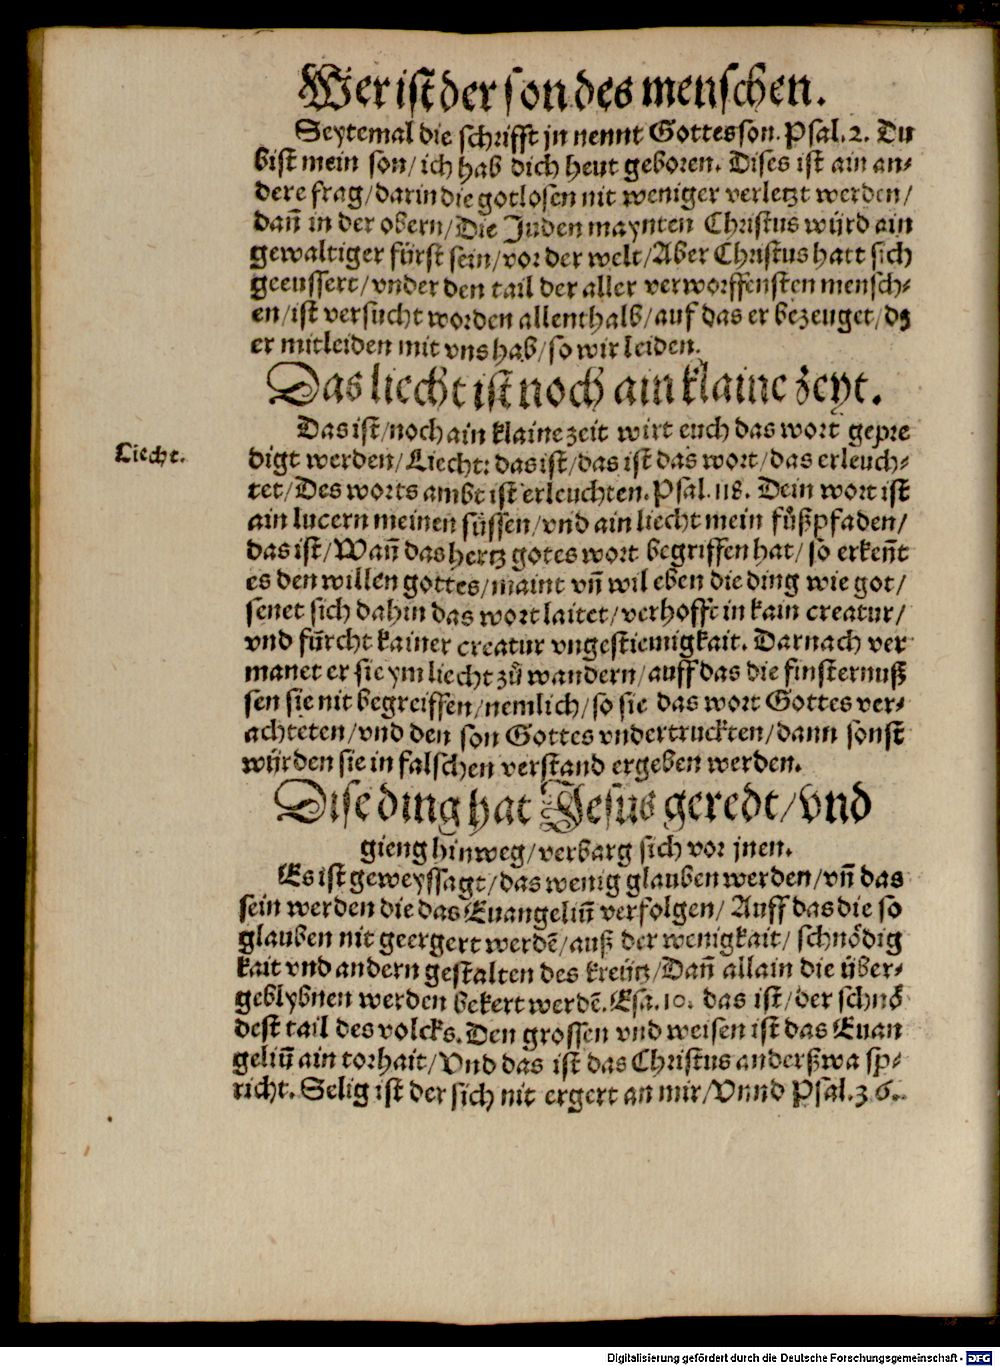 Wer ist der son des menschen.
Seytemal die schrifft jn nennt Gottes son. Psal. 2. Du
bist mein son/ ich hab dich heut geboren. Dises ist ain an-
dere frag/ darin die gotlosen nit weniger verletzt werden/
dañ in der obern/ Die Juden maynten Christus würd ain
gewaltiger fürst sein/ vor der welt/ Aber Christus hatt sich
geeussert/ vnder den tail der aller verworffensten mensch-
en/ ist versucht worden allenthalb/ auf das er bezeuget/ dz
er mitleiden mit vns hab/ so wir leiden.
Das liecht ist noch ain klaine zeyt.
Das ist/ noch ain klaine zeit wirt euch das wort gepre
Liecht.
digt werden/ Liecht: das ist/ das ist das wort/ das erleuch-
tet/ Des worts ambt ist erleuchten. Psal. 118. Dein wort ist
ain lucern meinen füssen/ vnd ain liecht mein fůßpfaden/
das ist/ Wañ das hertz gotes wort begriffen hat/ so erkeñt
es den willen gottes/ maint vñ wil eben die ding wie got/
senet sich dahin das wort laitet/ verhofft in kain creatur/
vnd fürcht kainer creatur vngestiemigkait. Darnach ver
manet er sie ym liecht zů wandern/ auff das die finsternuß
sen sie nit begreiffen/ nemlich/ so sie das wort Gottes ver-
achteten/ vnd den son Gottes vndertruckten/ dann sonst
würden sie in falschen verstand ergeben werden.
Dise ding hat Jesus geredt/ vnd
gieng hinweg/ verbarg sich vor jnen.
Es ist geweyssagt/ das wenig glauben werden/ vñ das
sein werden die das Euangeliũ verfolgen/ Auff das die so
glauben nit geergert werdẽ/ auß der wenigkait/ schnödig
kait vnd andern gestalten des kreütz/ Dañ allain die über-
geblybnen werden bekert werdẽ. Esa. 10. das ist/ der schnö
dest tail des volcks. Den grossen vnd weisen ist das Euan
geliũ ain torhait/ Vnd das ist das Christus anderßwa sp-
richt. Selig ist der sich nit ergert an mir/ Vnnd Psal. 36.
Digitalisierung gefördert durch die Deutsche Forschungsgemeinschaft - DFG